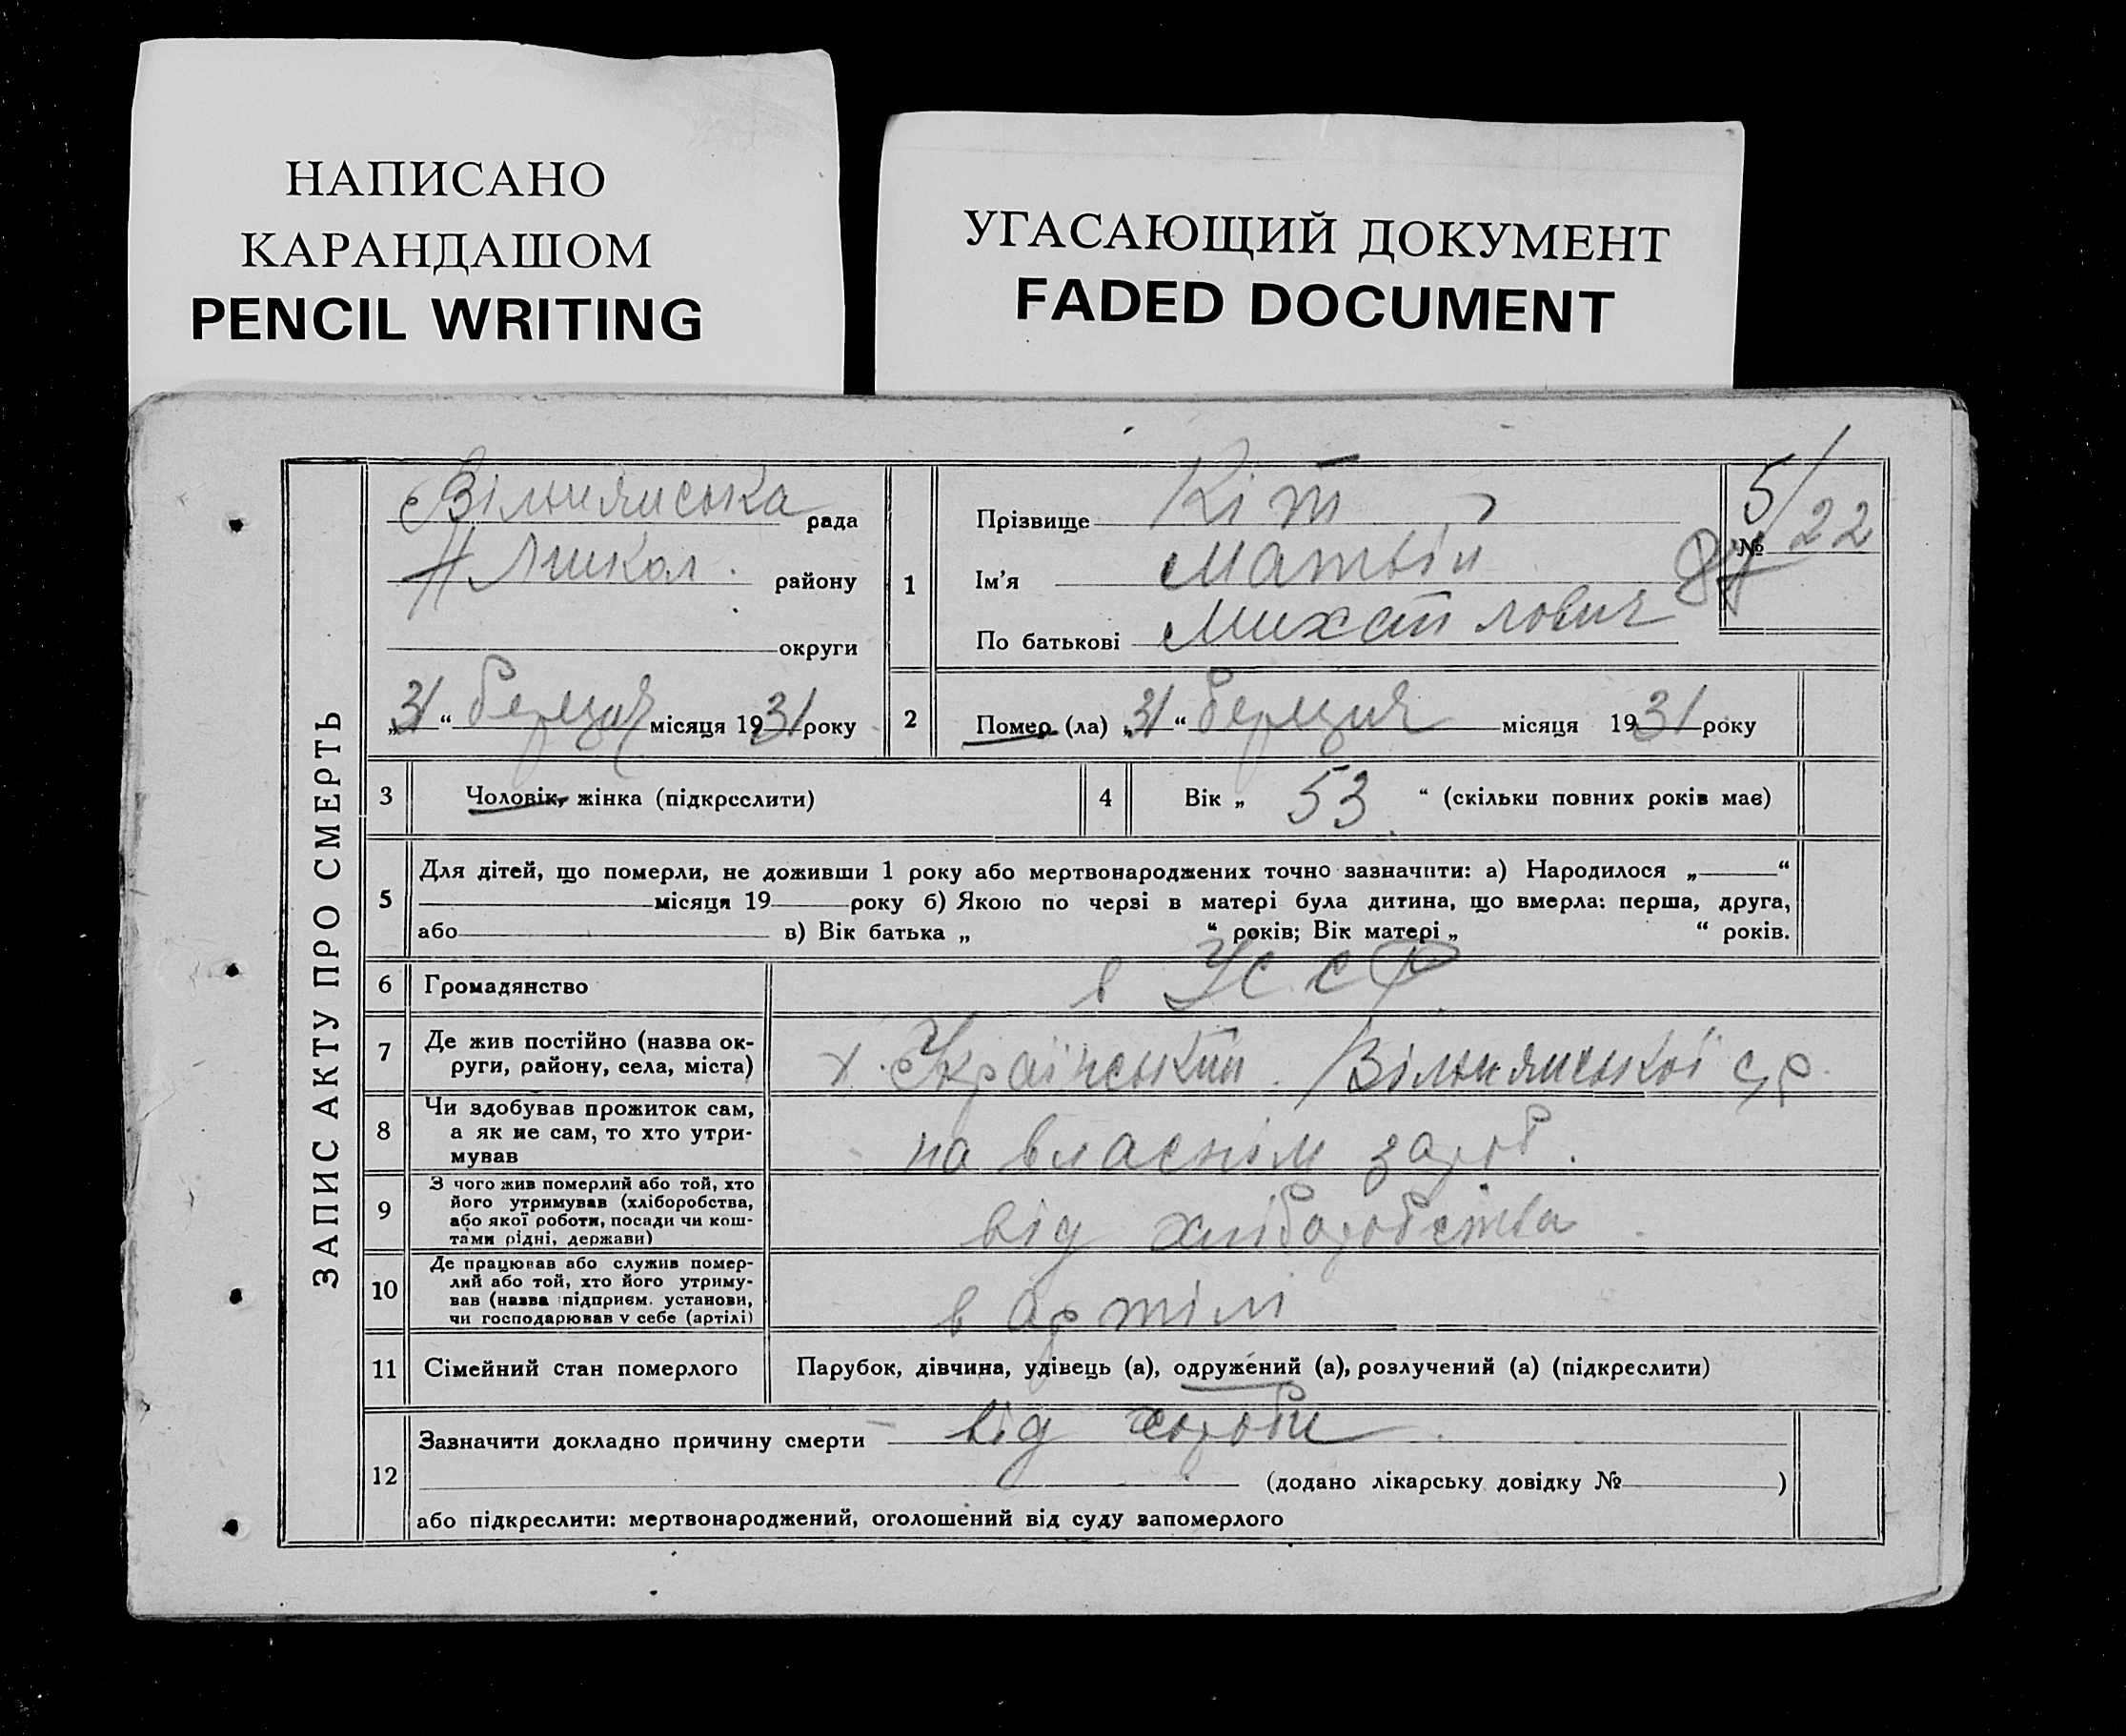 НАПИСАНО
КАРАНДАШОМ
PENCIL WRITING
УГАСАЮЩИЙ ДОКУМЕНТ
FADED DOCUMENT
ЗАПИС АКТУ ПРО СМЕРТЬ
Вільнянська рада
Н Микол. району
округи
„31“ березня місяця 1931 року
1
Прізвище Кіт
Ім'я Матвій
По батькові Михайлович
5/22
№
2
Помер (ла) „31“ березня місяця 1931 року
3 Чоловік, жінка (підкреслити)
4 Вік „ 53 “ (скільки повних років має)
5
Для дітей, що померли, не доживши 1 року або мертвонароджених точно зазначити: а) Народилося „ “
місяця 19 року б) Якою по черзі в матері була дитина, що вмерла: перша, друга,
або в) Вік батька „ “ років; Вік матері „ “ років.
6 Громадянство в УССР
7 Де жив постійно (назва ок-
руги, району, села, міста)
х. Український. Вільнянської с/р.
8 Чи здобував прожиток сам,
а як не сам, то хто утри-
мував
на власнім зароб.
9 З чого жив померлий або той, хто
його утримував (хліборобства,
або якої роботи, посади чи кош-
тами рідні, держави)
від хліборобства
10 Де працював або служив помер-
лий або той, хто його утриму-
вав (назва підприєм. установи,
чи господарював у себе (артілі)
в артілі
11 Сімейний стан померлого Парубок, дівчина, удівець (а), одружений (а), розлучений (а) (підкреслити)
12
Зазначити докладно причину смерти від хороби
(додано лікарську довідку № )
або підкреслити: мертвонароджений, оголошений від суду запомерлого